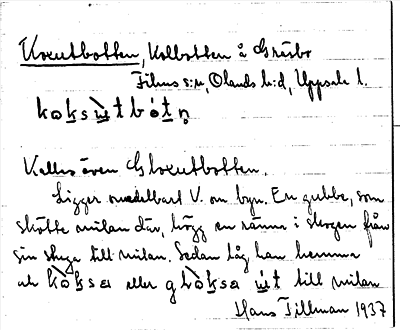 Koxutbotten, Kolbotten å Gräsbo
Films s:n, Olands h:d, Uppsala l.
Kallas även Gloxutbotten.
Ligger omedelbart V. om byn. En gubbe, som
skötte milan där, högg en ränna i skogen från
sin stuga till milan. Sedan låg han hemma
och eller till milan
Hans Tillman 1937